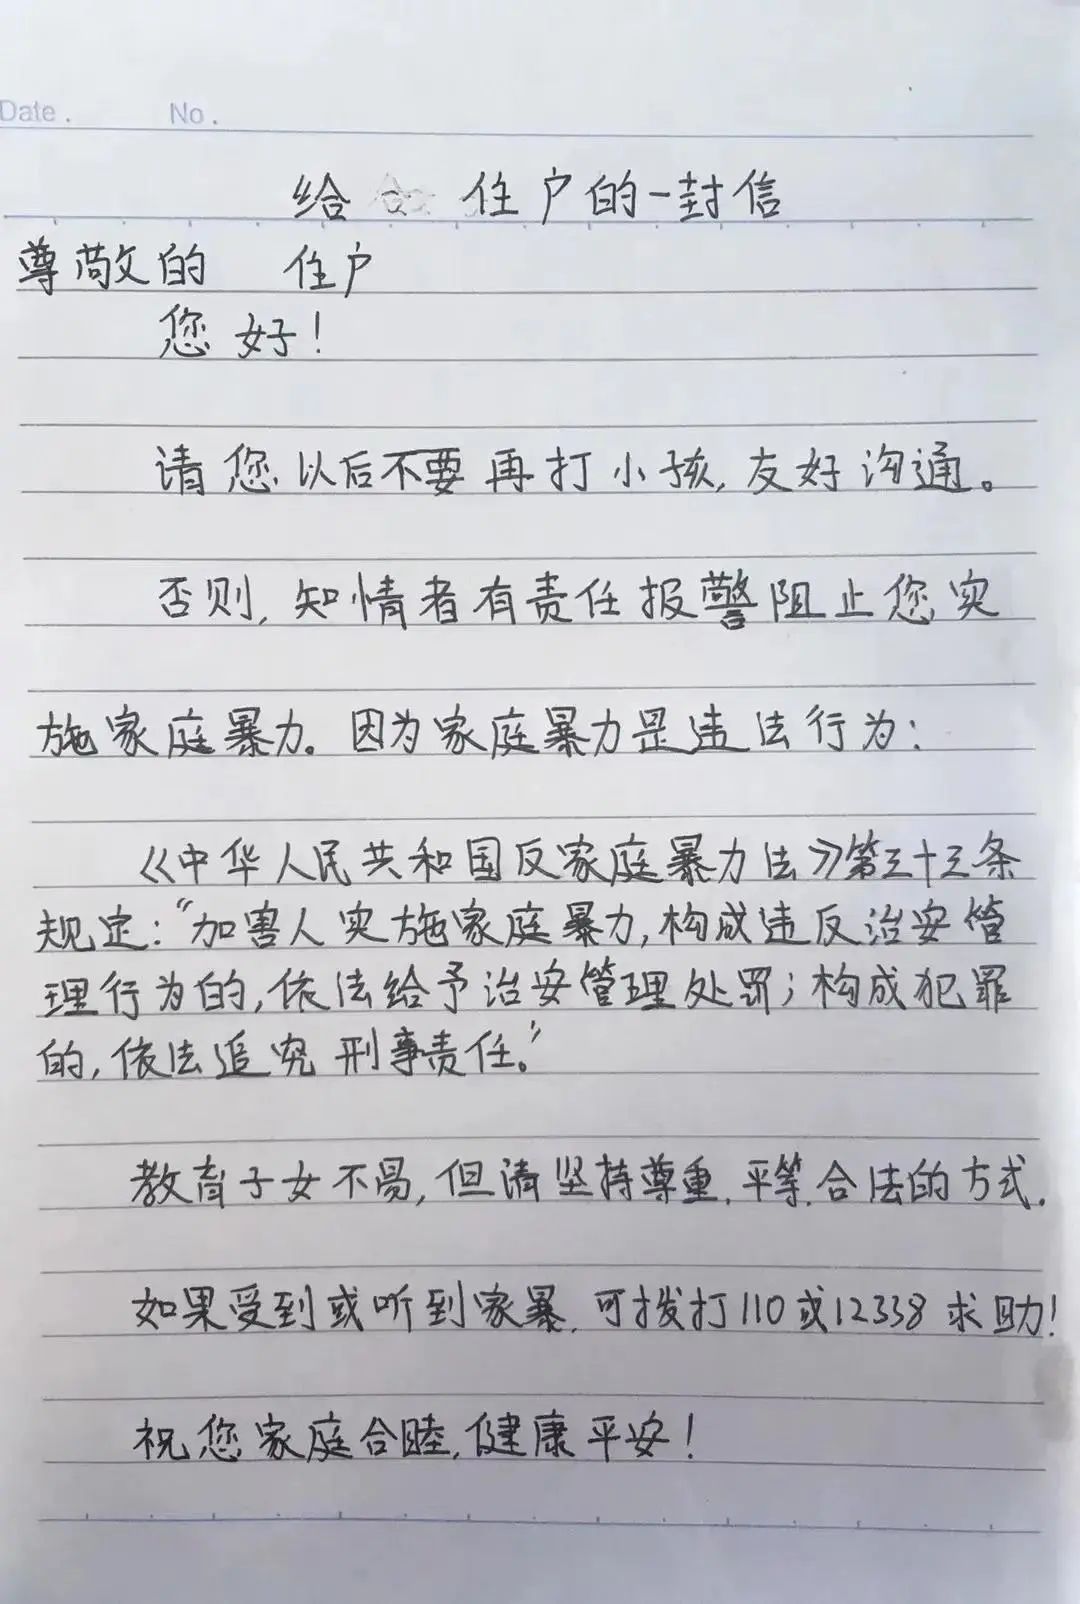 Date. No.
给 住户的一封信
尊敬的 住户
您好!
请您以后不要再打小孩,友好沟通。
否则,知情者有责任报警阻止您实
施家庭暴力。因为家庭暴力是违法行为:
《中华人民共和国反家庭暴力法》第三十三条
规定:“加害人实施家庭暴力,构成违反治安管
理行为的,依法给予治安管理处罚;构成犯罪
的,依法追究刑事责任。”
教育子女不易,但请坚持尊重、平等、合法的方式。
如果受到或听到家暴,可拨打110或12338求助!
祝您家庭合睦,健康平安!